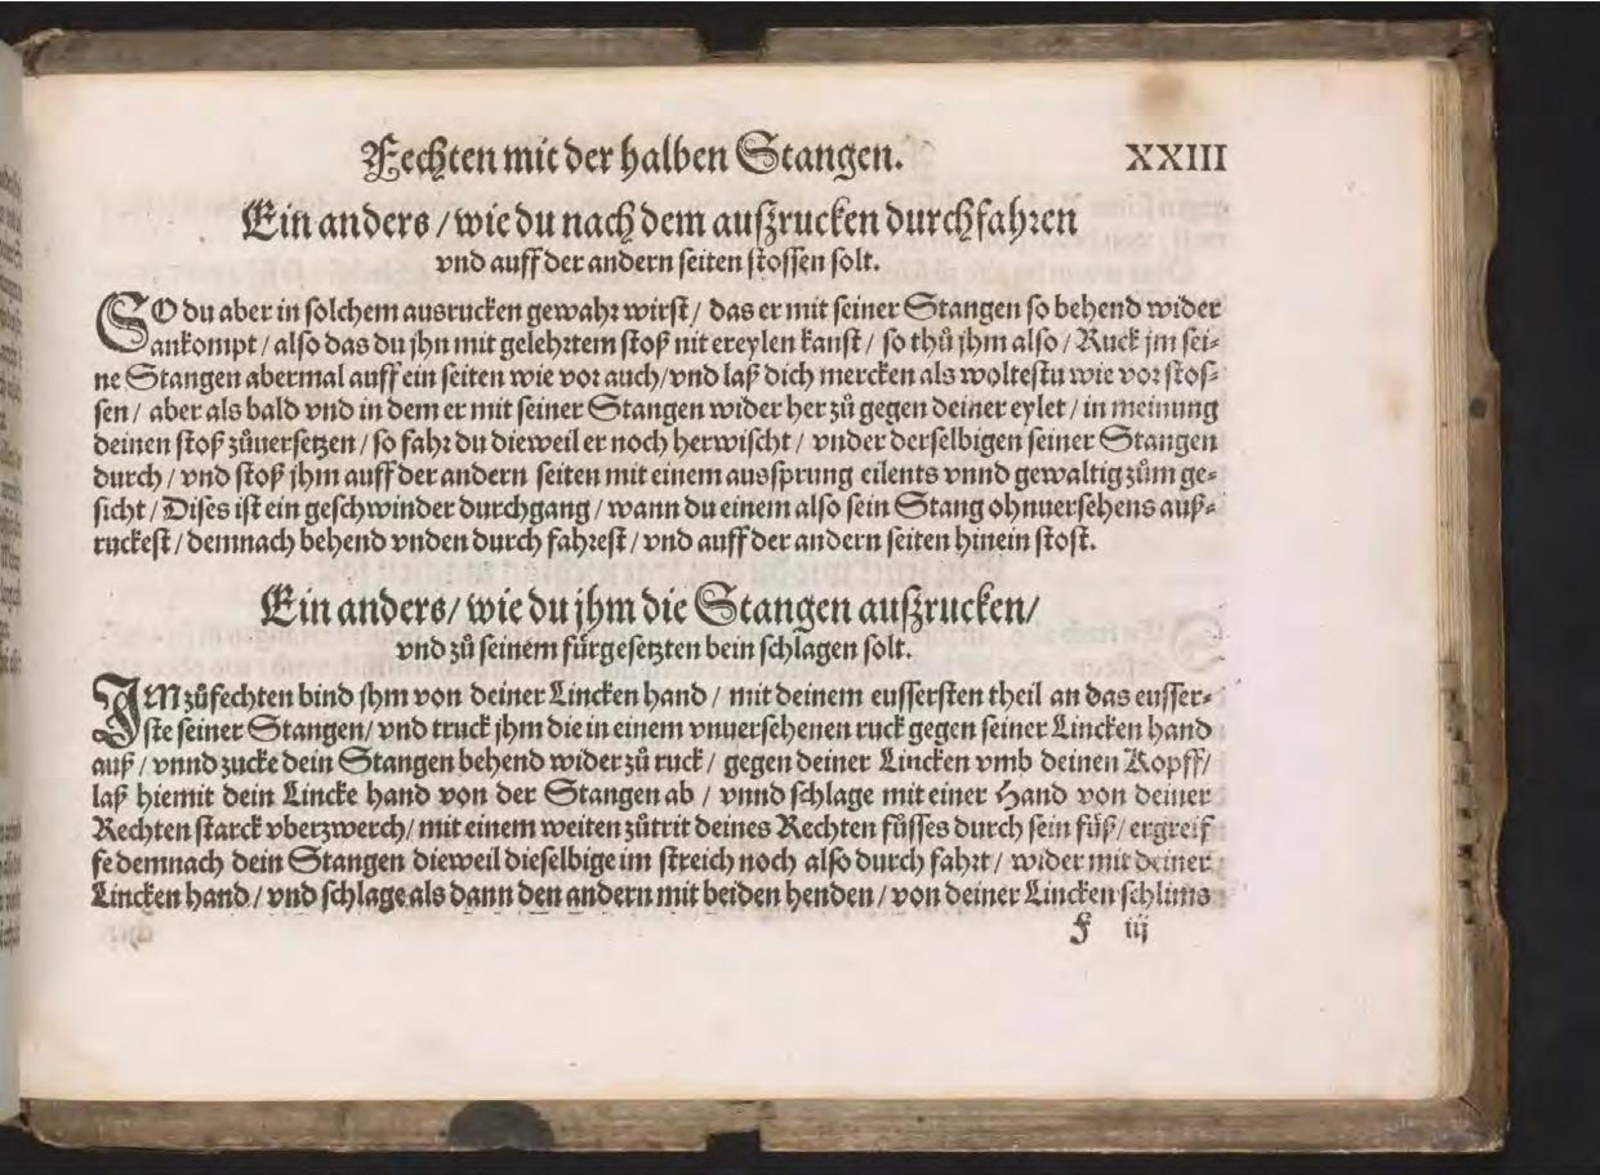 Fechten mit der halben Stangen. XXIII
Ein anders / wie du nach dem außrucken durchfahren
vnd auff der andern seiten stossen solt.
SO du aber in solchem ausrucken gewahr wirst / das er mit seiner Stangen so behend wider
ankompt / also das du jhn mit gelehrtem stoß nit ereylen kanst / so thů jhm also / Ruck jm sei-
ne Stangen abermal auff ein seiten wie vor auch / vnd laß dich mercken als woltestu wie vor stos-
sen / aber als bald vnd in dem er mit seiner Stangen wider her zů gegen deiner eylet / in meinung
deinen stoß zůuersetzen / so fahr du dieweil er noch herwischt / vnder derselbigen seiner Stangen
durch / vnd stoß jhm auff der andern seiten mit einem aussprung eilents vnnd gewaltig zům ge-
sicht / Dises ist ein geschwinder durchgang / wann du einem also sein Stang ohnuersehens auß-
ruckest / demnach behend vnden durch fahrest / vnd auff der andern seiten hinein stost.
Ein anders / wie du jhm die Stangen außrucken /
vnd zů seinem fürgesetzten bein schlagen solt.
IM zůfechten bind jhm von deiner Lincken hand / mit deinem eussersten theil an das eusser-
ste seiner Stangen / vnd truck jhm die in einem vnuersehenen ruck gegen seiner Lincken hand
auß / vnnd zucke dein Stangen behend wider zů ruck / gegen deiner Lincken vmb deinen Kopff /
laß hiemit dein Lincke hand von der Stangen ab / vnnd schlage mit einer Hand von deiner
Rechten starck vberzwerch / mit einem weiten zůtrit deines Rechten fůsses durch sein fůß / ergreif
fe demnach dein Stangen dieweil dieselbige im streich noch also durch fahrt / wider mit deiner
Lincken hand / vnd schlage als dann den andern mit beiden henden / von deiner Lincken schlims
F iij